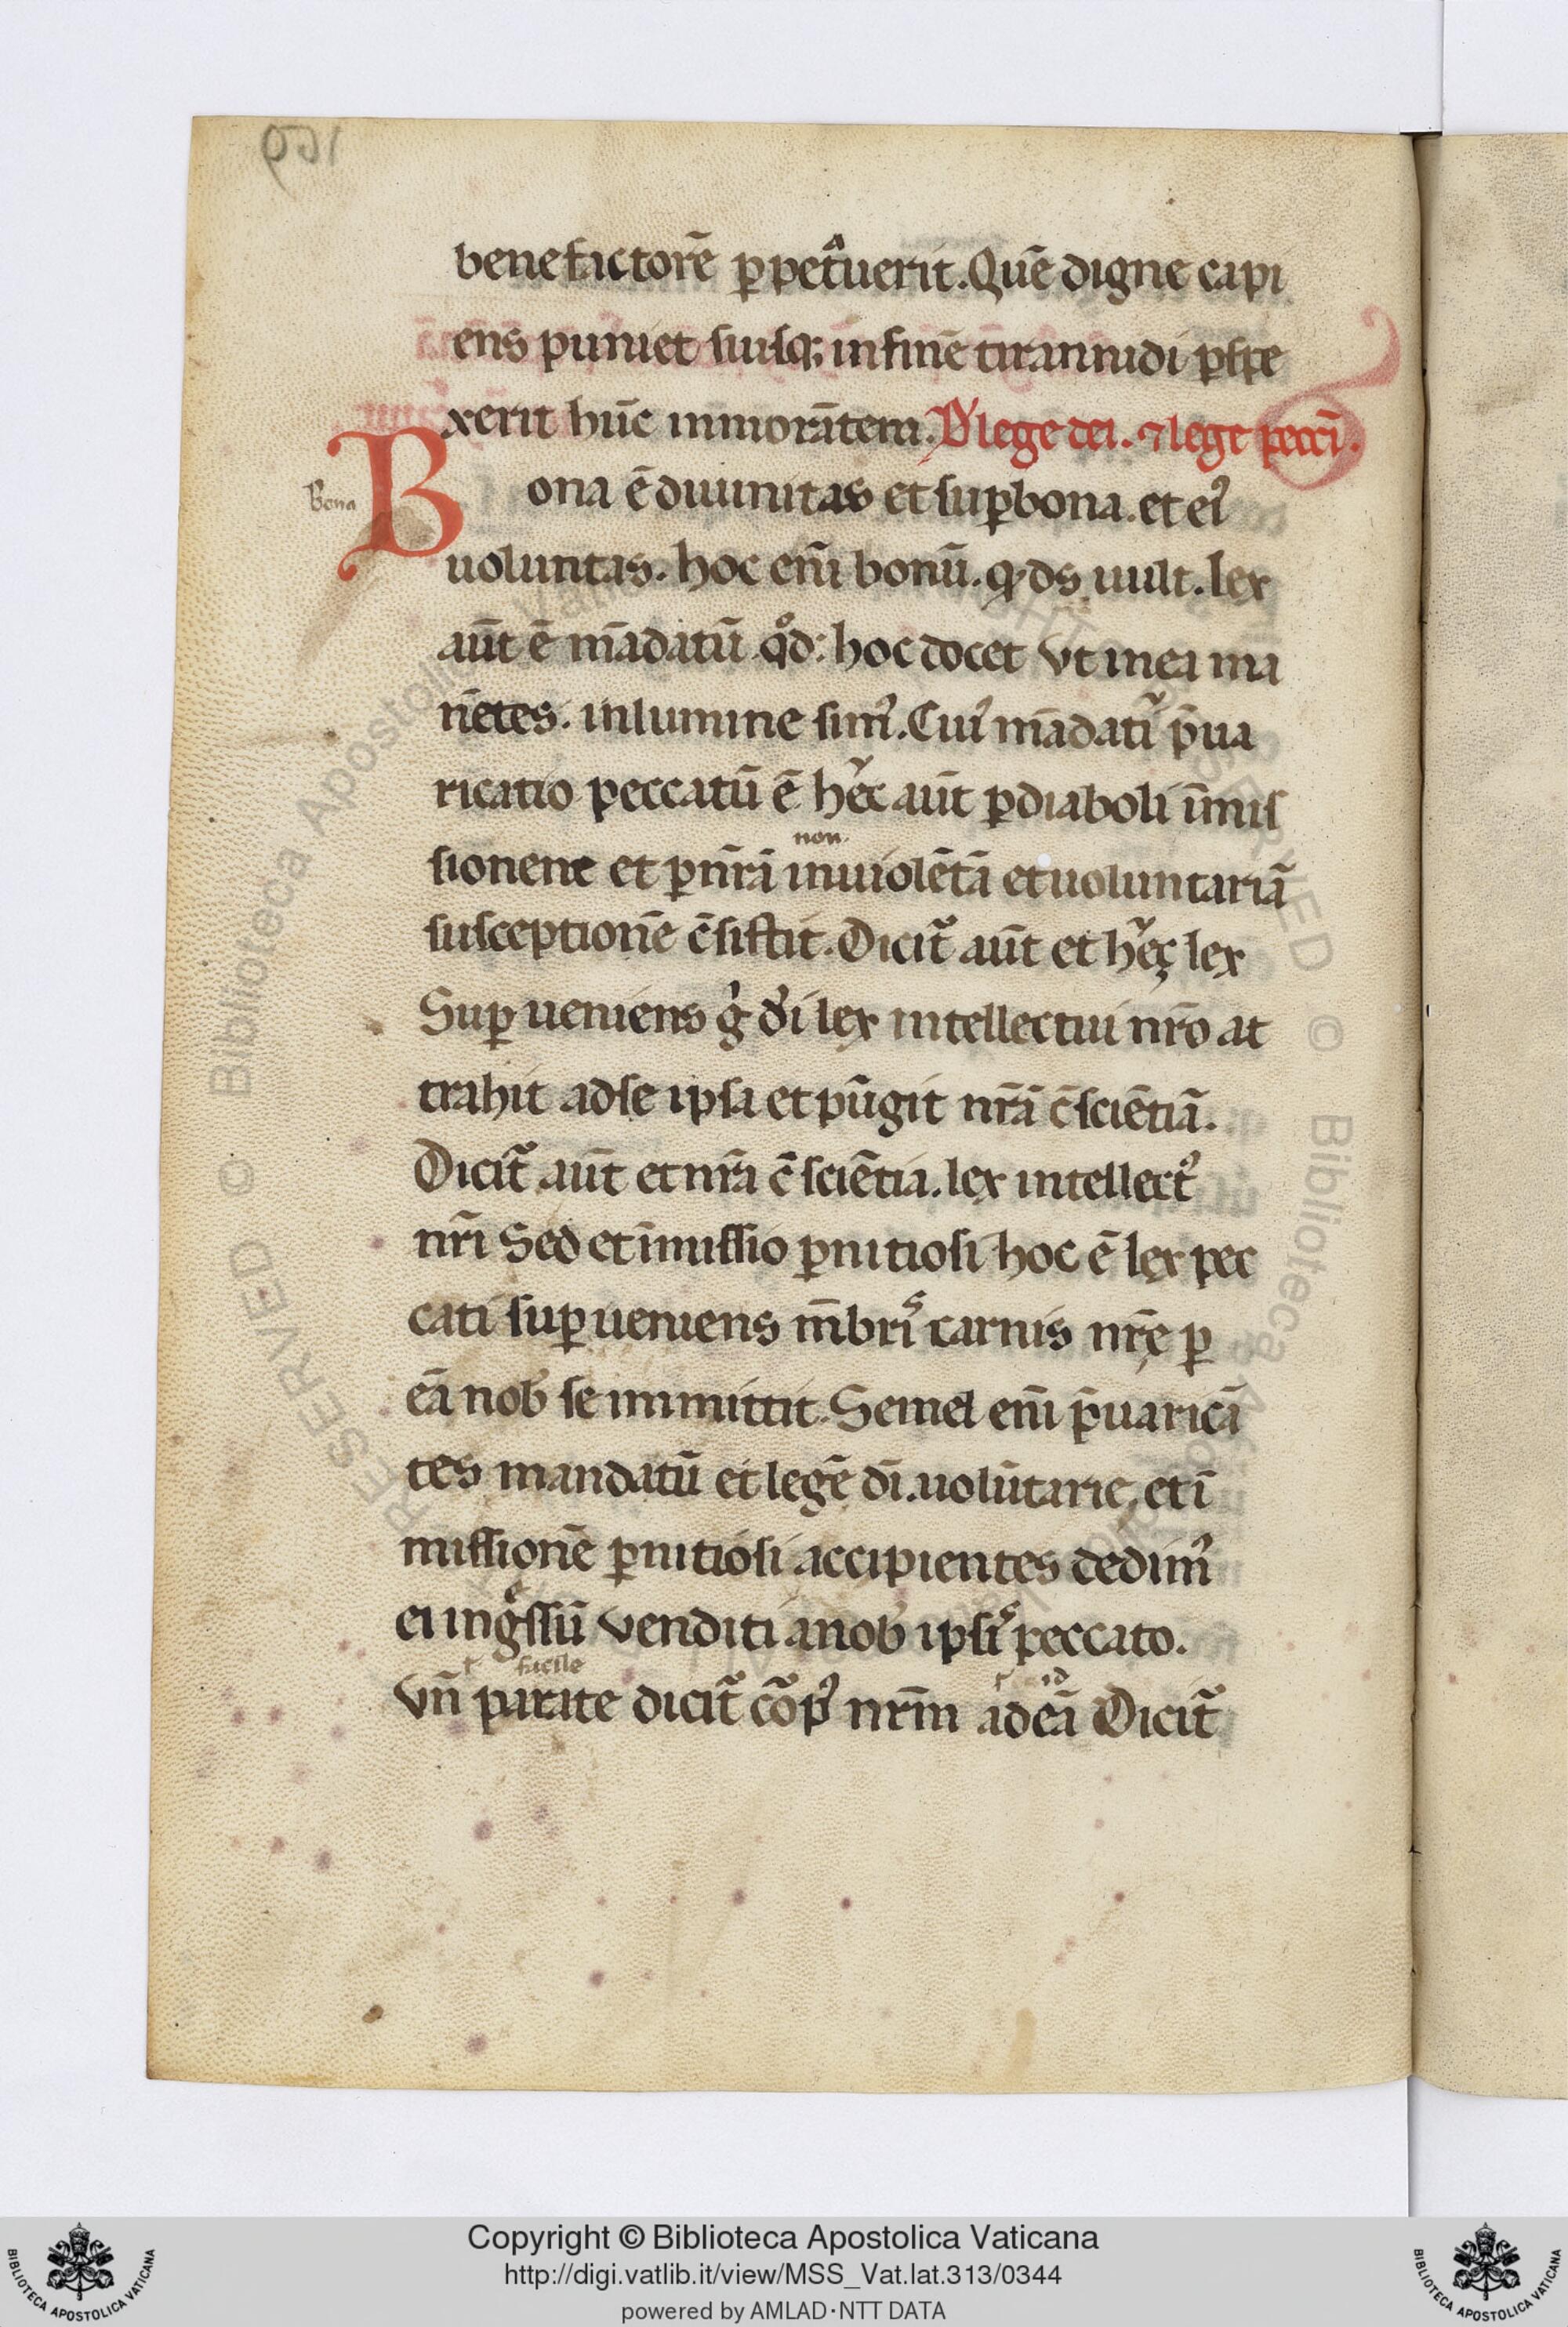 benefactorē ꝑpetͣuerit. Quē digne capi
ens puniet suisq; infinē tirannidi ꝑspe
xerit hūc inmorātem. D̾ lege dei. ⁊ lege pecc̄i.
Bona
Bona ē diuinitas et suꝑbona. et ei᾽
uoluntas. hoc eni̅ bonū. ꝙ ds uult. lex
aūt ē mādatū qd̊: hoc docet vt inea ma
nētes. inlumine sim᾽. Cui᾽ mādati p̄ua
ricatio peccatū ē hec aūt ꝑdiaboli īmis
non.
sionem et ꝑnr̄ā inuiolētā et uoluntariā
susceptionē c̄sistit. Dicit᷑ aūt et hęc lex
Suꝑ ueniens g̍ di lex intellectui nr̄o at
trahit adse ipsa et pūgit nr̄ā c̄sciētiā.
Dicit᷑ aūt et nr̄a c̄sciētia. lex intellect᾽
nr̄i Sed et īmissio ꝑnitiosi hoc ē lex pec
cati suꝑueniens m̄bri᷒ carnis nr̄ę ꝑ
eā nob̄ se inmittit. Semel eni̅ p̄uaricā
tes mandatū et legē dī. uolūtarie, et ī
missionē ꝑnitiosi accipientes dedim᾽
ei ingͤssū venditi anob̄ ipsi᷒ peccato.
facile
Vn̄ parate dicit᷑ corp᾽ nrm̄ ad eā Dicit᷑
id
RESERVED © Biblioteca Apostolica Vaticana
Copyright © Biblioteca Apostolica Vaticana
http://digi.vatlib.it/view/MSS_Vat.lat.313/0344
powered by AMLAD·NTT DATA
BIBLIOTECA APOSTOLICA VATICANA
BIBLIOTECA APOSTOLICA VATICANA